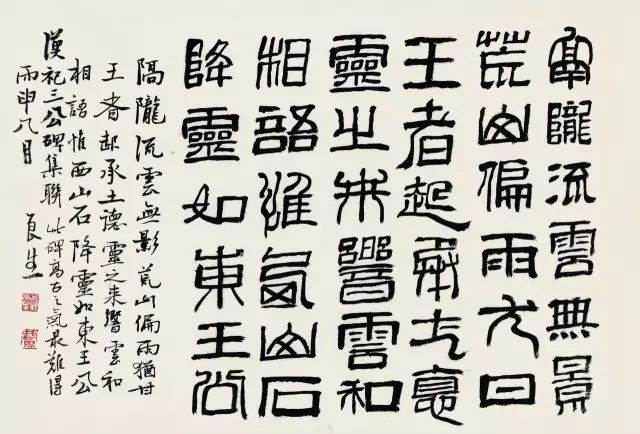 鬲隴流雲無景
荒山偏雨尤甘
王者起承土悳
靈之来響雲和
相語惟西山石
降靈如東王公
隔隴流雲無影荒山偏雨猶甘
王者起承土德靈之来響雲和
相語惟西山石降靈如東王公
漢祀三公碑集聯 此碑高古之氣最難得
丙申八月 良生